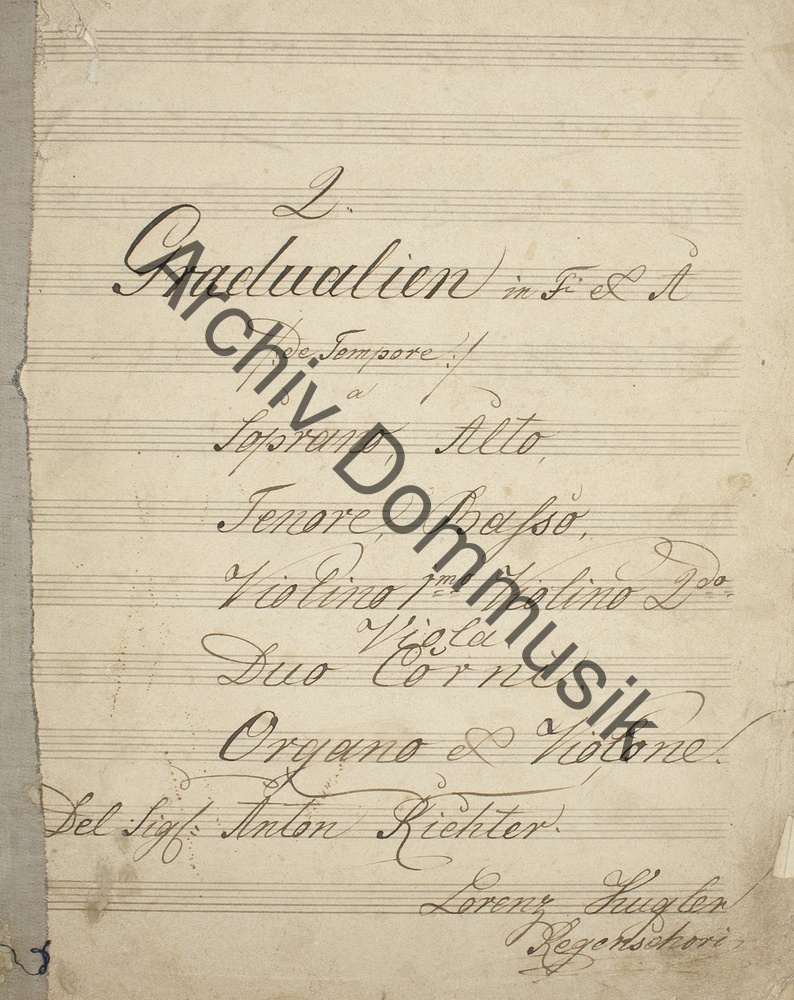 2.
Gradualien in F & A
/: de Tempore :/
a
Soprano, Alto,
Tenore, Basso,
Violino 1mo Violino 2do
Viola
Duo Corni
Organo & Violone.
Del Sigl: Anton Richter.
Lorenz Kugler
Regenschori
Archiv Dommusik